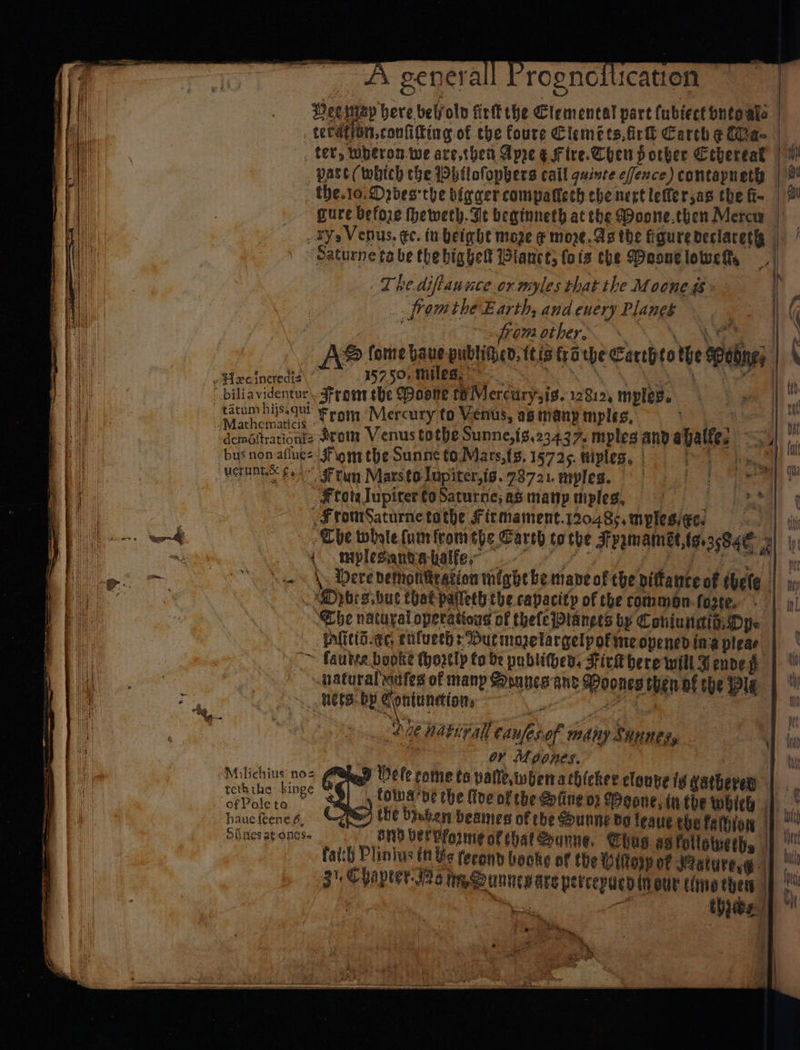 A generall Prognostication
Hee may here behold first the Elemental part subiect vnto alte
teration, consisting of the foure Elemēts, first Earth & Wa-
ter, wheron we are, then Ayre & Fire. Then þ other Ethereal
part (which the Philosophers call quinte essence) contayneth
the.10. Orbes: the bigger compasseth the next lesser, as the fi-
gure before sheweth. It beginneth at the Moone. then Mercu
ry, Venus, &c. in height more & more. As the figure declareth
Saturne to be the highest Planet, so is the Moone lowest.
The distaunce or myles that the Moone is
from the Earth, and euery Planet
from other.
AS some haue published, it is frō the Earth to the Moone,
15750. miles.
From the Moone to Mercury, is. 12812. myles.
From Mercury to Venus, as many myles.
From Venus to the Sunne, is. 23437. myles and a halfe.
From the Sunne to Mars, is. 15725. myles.
From Mars to Iupiter, is. 78721. myles.
From Iupiter to Saturne, as many myles.
From Saturne to the Firmament. 120485. myles, &c.
The whole sum from the Earth to the Fyrmamēt, is. 3584
myles and a halfe.
Hæc incredi=
bilia videntur
tātum hijs, qui
Mathematicis
demōstrationi=
bus non assue=
uerunt, &
Here demonstration might be made of the distance of these
Orbes, but that passeth the capacity of the common sorte.
The natural operations of these Planets by Coniunctiō, Op-
positiō. &c. ensueth: But more largely of me opened in a plea-
saunte booke shortly to be published. First here will I ende þ
natural causes of many Sunnes and Moones then of the Pla
nets by Coniunction,
The naturall causes of many Sunnes,
or Moones.
Milichius no=
teth the kinge
of Pole to
haue seene 6.
Sūnes at ones.
These come to passe, when a thicker cloude is gathered
towarde the side of the Sūne or Moone, in the which
the broken beames of the Sunne do leaue the fashion
and very forme of that Sunne. Thus as followeth,
saith Plinius in his second booke of the History of Nature, &
31. Chapter. No mo Sunnes are perceyued in our time then